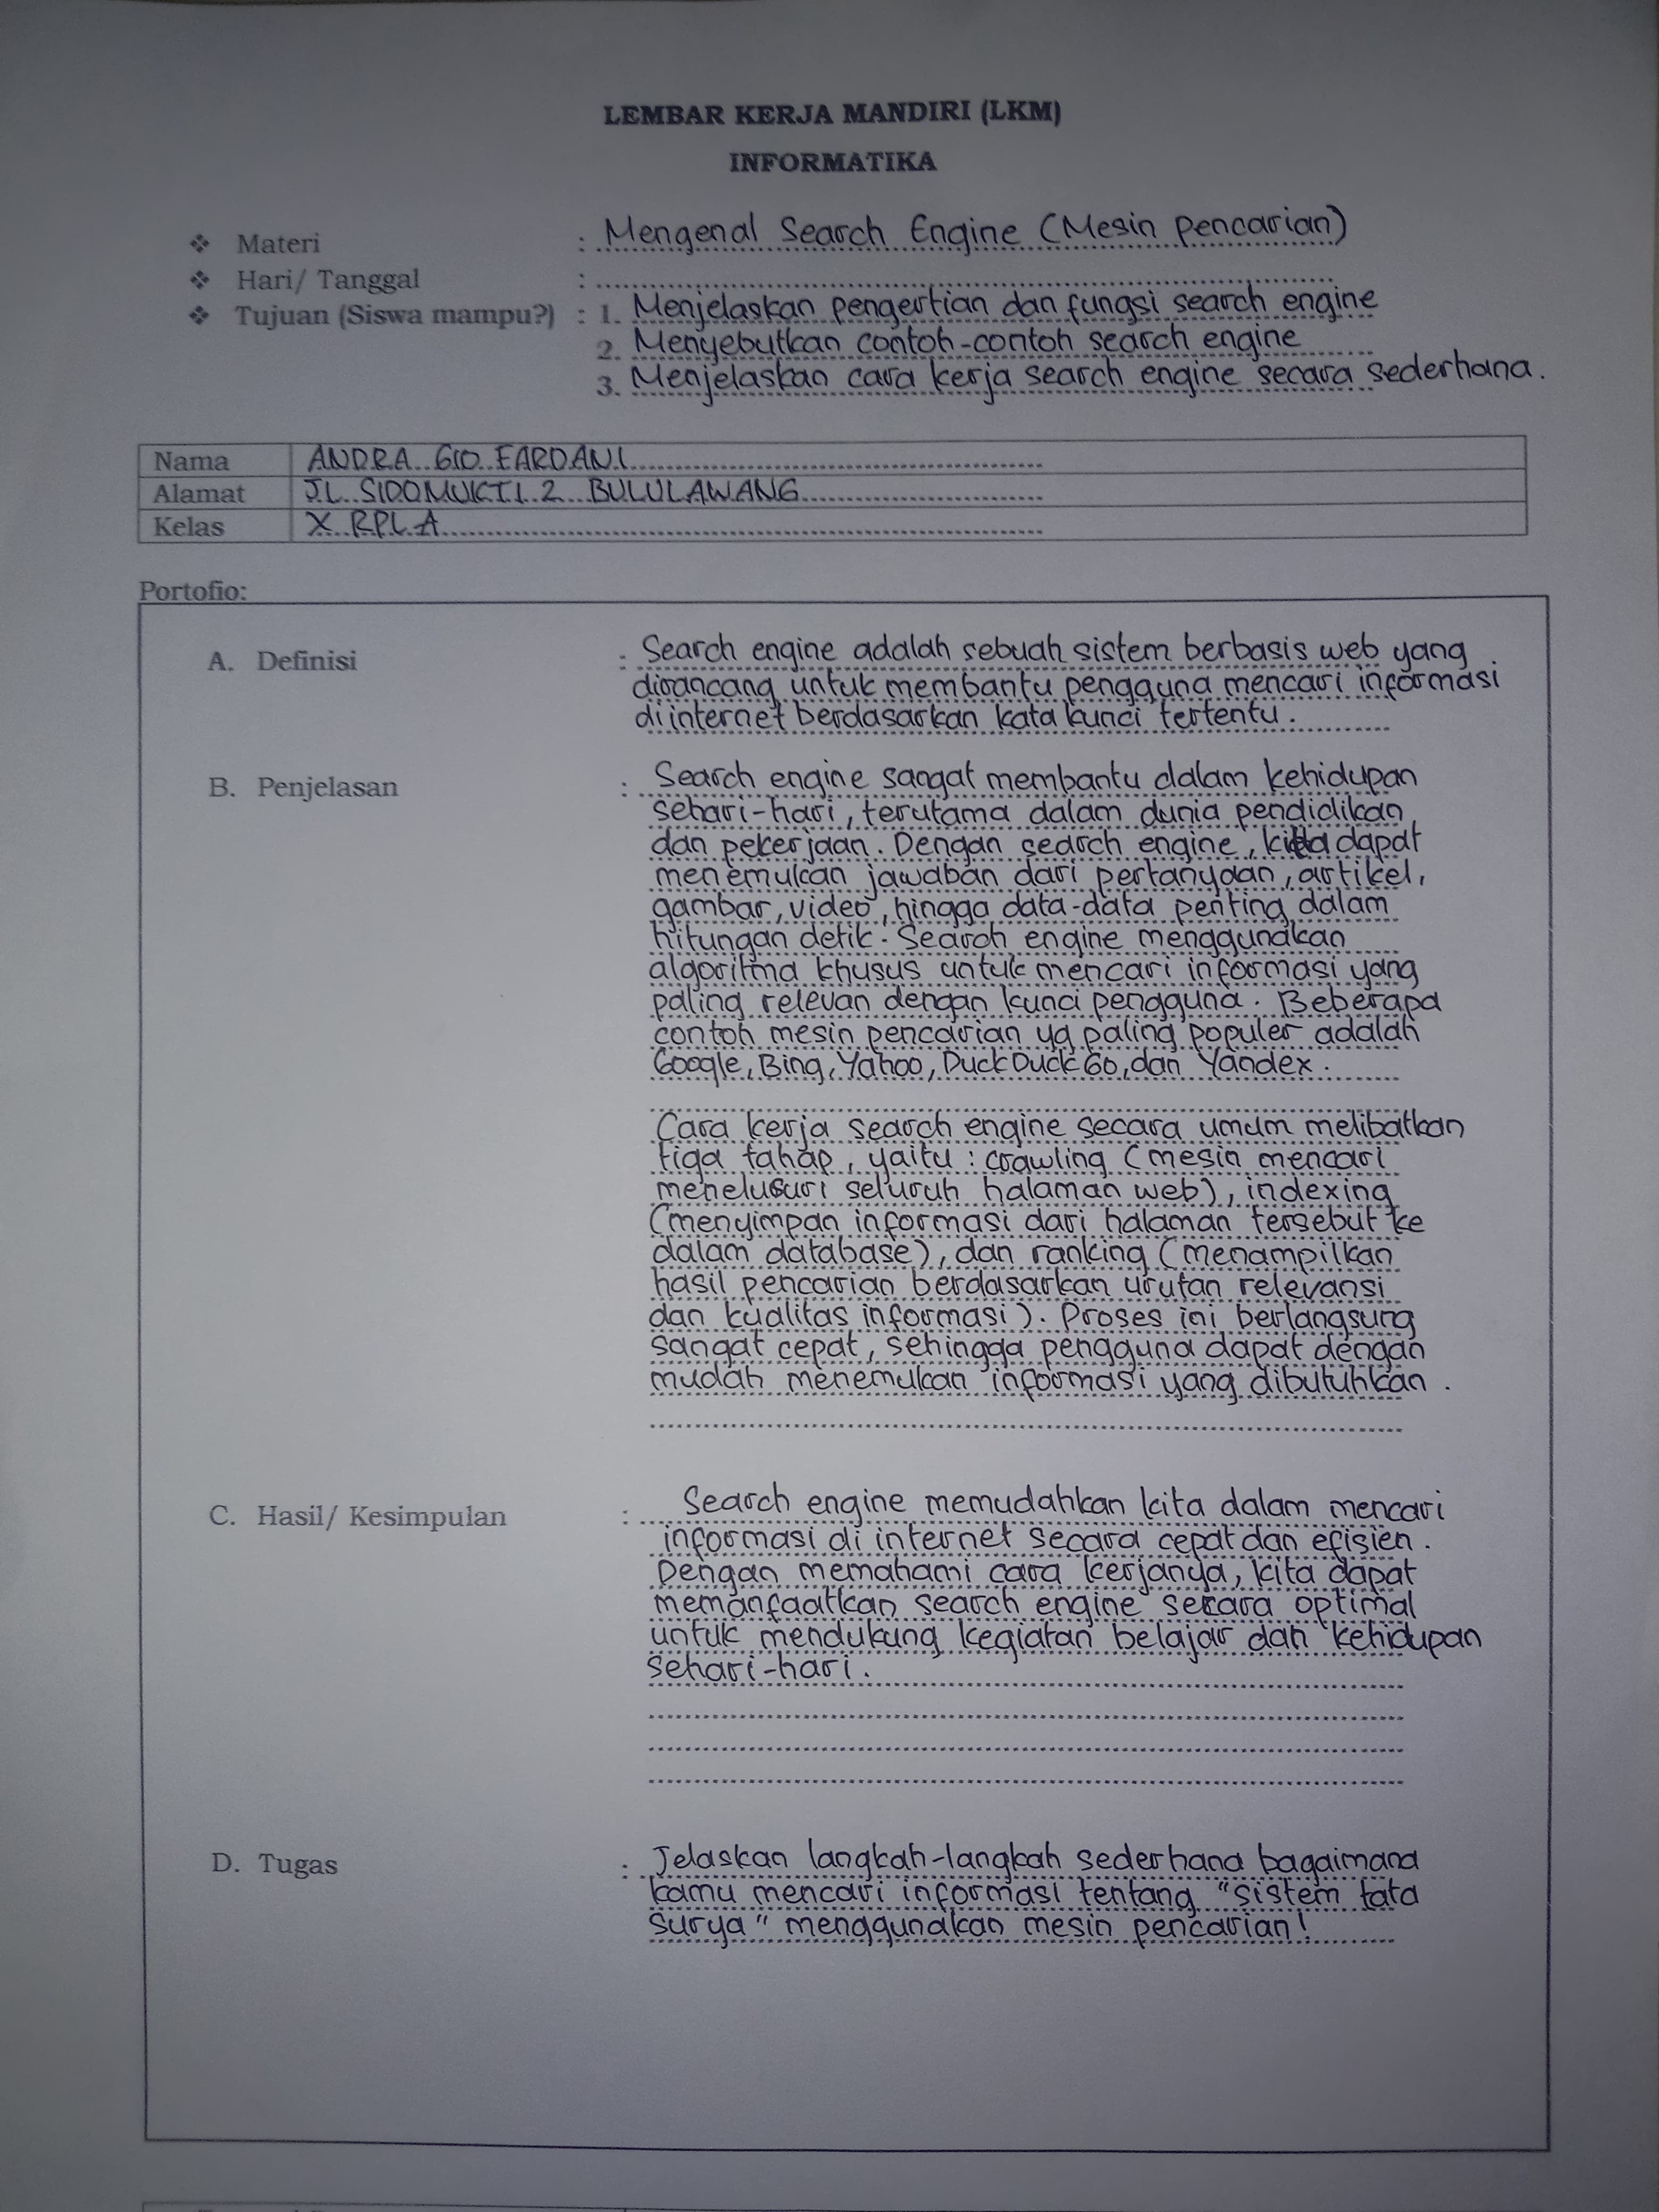 LEMBAR KERJA MANDIRI (LKM)
INFORMATIKA
❖ Materi : Mengenal Search Engine (Mesin Pencarian)
❖ Hari/ Tanggal :
❖ Tujuan (Siswa mampu?) : 1. Menjelaskan pengertian dan fungsi search engine
2. Menyebutkan contoh-contoh search engine
3. Menjelaskan cara kerja search engine secara sederhana.
Nama ANDRA GIO FARDANI
Alamat JL SIDOMUKTI 2 BULULAWANG
Kelas X RPL A
Portofio:
A. Definisi : Search engine adalah sebuah sistem berbasis web yang
dirancang untuk membantu pengguna mencari informasi
di internet berdasarkan kata kunci tertentu.
B. Penjelasan : Search engine sangat membantu dalam kehidupan
sehari-hari, terutama dalam dunia pendidikan
dan pekerjaan. Dengan search engine, kita dapat
menemukan jawaban dari pertanyaan, artikel,
gambar, video, hingga data-data penting dalam
hitungan detik. Search engine menggunakan
algoritma khusus untuk mencari informasi yang
paling relevan dengan kunci pengguna. Beberapa
contoh mesin pencarian yg paling populer adalah
Google, Bing, Yahoo, DuckDuckGo, dan Yandex.
Cara kerja search engine secara umum melibatkan
tiga tahap, yaitu : crawling (mesin mencari
menelusuri seluruh halaman web), indexing
(menyimpan informasi dari halaman tersebut ke
dalam database), dan ranking (menampilkan
hasil pencarian berdasarkan urutan relevansi
dan kualitas informasi). Proses ini berlangsung
sangat cepat, sehingga pengguna dapat dengan
mudah menemukan informasi yang dibutuhkan.
C. Hasil/ Kesimpulan : Search engine memudahkan kita dalam mencari
informasi di internet secara cepat dan efisien.
Dengan memahami cara kerjanya, kita dapat
memanfaatkan search engine secara optimal
untuk mendukung kegiatan belajar dan kehidupan
sehari-hari.
D. Tugas : Jelaskan langkah-langkah sederhana bagaimana
kamu mencari informasi tentang "sistem tata
surya" menggunakan mesin pencarian!